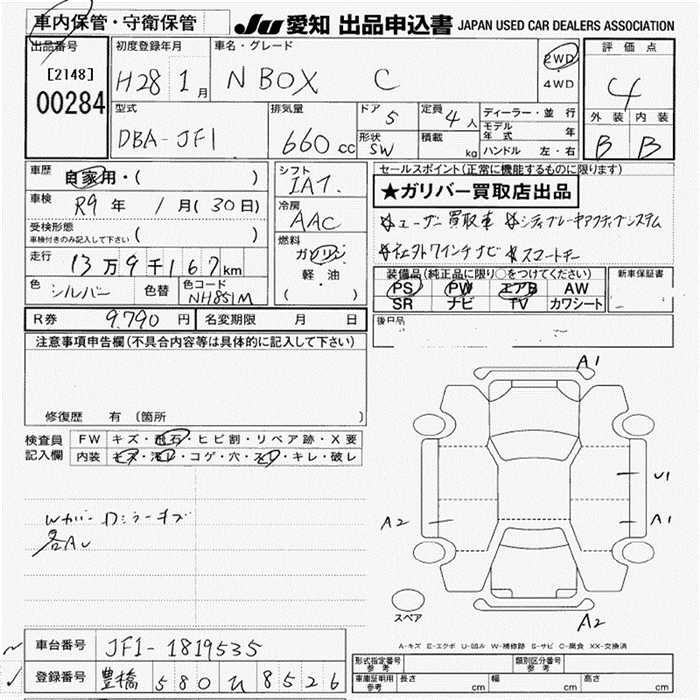 車内保管・守衛保管
JU 愛知 出品申込書 JAPAN USED CAR DEALERS ASSOCIATION
出品番号 初度登録年月 車名・グレード 評価点
[2148] 00284
H28 1月 N BOX C 2WD 4WD 4
型式 排気量 ドア 5 定員 4人 ディーラー・並行 外装 内装
DBA-JF1 660cc 形状 SW 積載 kg モデル年式 年 B B
ハンドル 左・右
車歴 自家用・( ) シフト IAT. セールスポイント(正常に機能するものに限ります)
車検 R9年 1月(30日) 冷房 AAC ★ガリバー買取店出品
受検形態 車検付きのみ記入して下さい ( ) ☆ユーザー買取車 ☆シティブレーキアクティブシステム
走行 13万9千167km 燃料 ガソリン 軽・油 ( ) ナビ ☆スマートキー
色 シルバー 色替 色コード NH851M
装備品(純正品に限り○をつけてください) 新車保証書
PS PW エアB AW
SR ナビ TV カワシート
R券 9.790円 名変期限 月 日 後日品
注意事項申告欄(不具合内容等は具体的に記入して下さい)
修復歴 有 (箇所 )
検査員記入欄 FW キズ・飛石・ヒビ割・リペア跡・X要
内装 キズ・汚レ・コゲ・穴・スレ・キレ・破レ
A1
U1
A2 A1
各AU
スペア
A2
A-キズ E-エクボ U-凹ミ W-補修跡 S-サビ C-腐食 XX-交換済
車台番号 JF1-1819535
登録番号 豊橋 580 ひ 8526
形式指定番号 参考 類別区分番号 参考
車庫証明用 参考 長さ cm 幅 cm 高さ cm